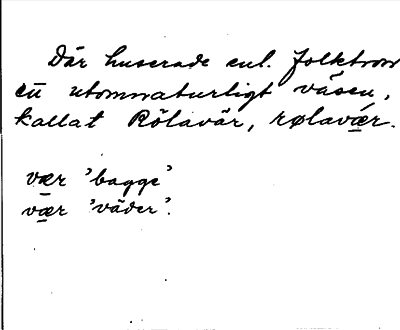 Där huserade enl. folktron
en utomnaturligt väsen,
kallat Rölavär, rølavær.
vær 'bagge'
vær 'väder'.